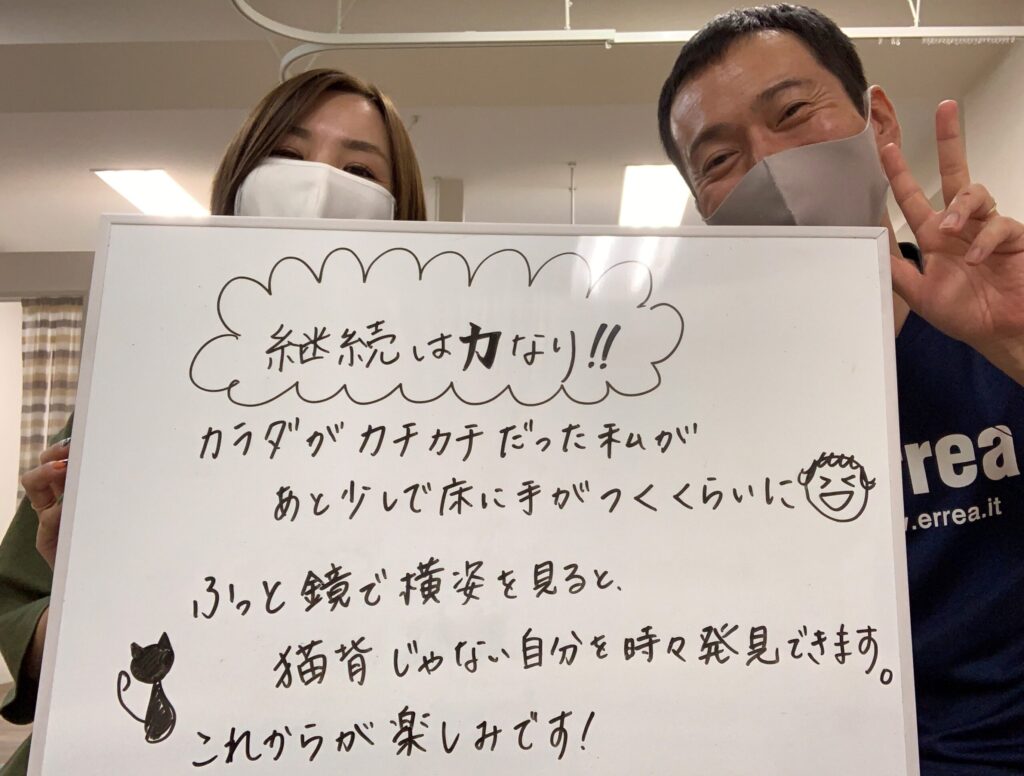 継続は力なり!!
カラダがカチカチだった私が
あと少しで床に手がつくくらいに
ふっと鏡で横姿を見ると、
猫背じゃない自分を時々発見できます。
これからが楽しみです!
rrea
.errea.it